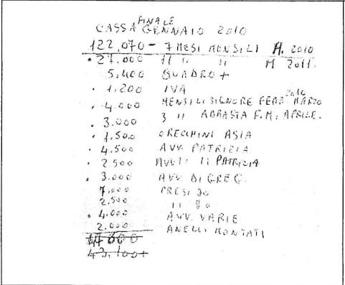 FINALE
CASSA GENNAIO 2010
122.070 - 7 MESI MENSILI A. 2010
• 27.000 11 " " M 2011.
5.400 QUADRO +
• 1.200 IVA
• 4.000 MENSILI SIGNORE FEBB MARZO
• 3.000 3 " F.M. APRILE.
• 1.500 ORECCHINI ASIA
• 4.500 AVV PATRIZIA
• 2500 11 PATRIZIA
• 3.000 AVV. DI GREG.
7.000 PRESI IO
2.500 " "
• 4.000 AVV. VARIE
2.000 ANELLI MONTATI
43.100+